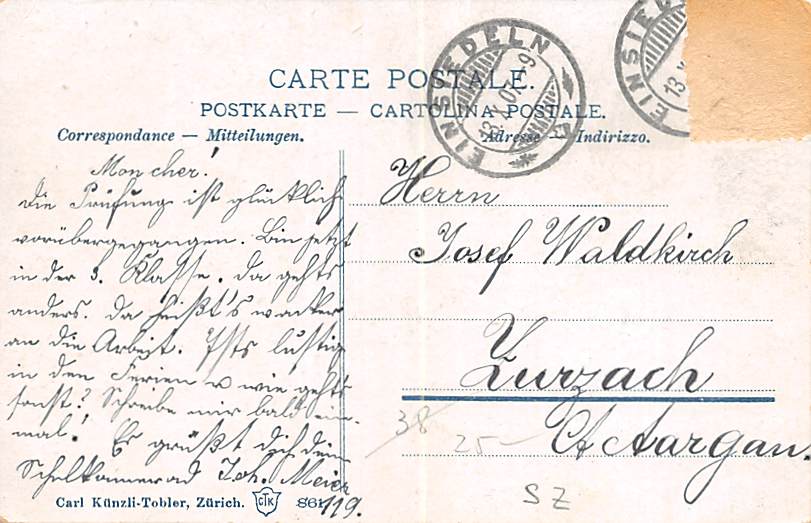 CARTE POSTALE.
POSTKARTE — CARTOLINA POSTALE.
Correspondance — Mitteilungen.
Adresse — Indirizzo.
EINSIEDELN
13 X 07 - 9
EINSIE
13
Mon cher!
Die Prüfung ist glücklich
vorübergegangen. Bin jetzt
in der 3. Klasse. Da gehts
anders. Da heißt's wacker
an die Arbeit. Ists lustig
in den Ferien u wie gehts
sonst? Schreibe mir bald ein-
mal! Es grüßt dich dein
Schulkamerad Joh. Meier
Herrn
Josef Waldkirch
Zurzach
Ct Aargau.
38
25 —
SZ
Carl Künzli-Tobler, Zürich. CTK